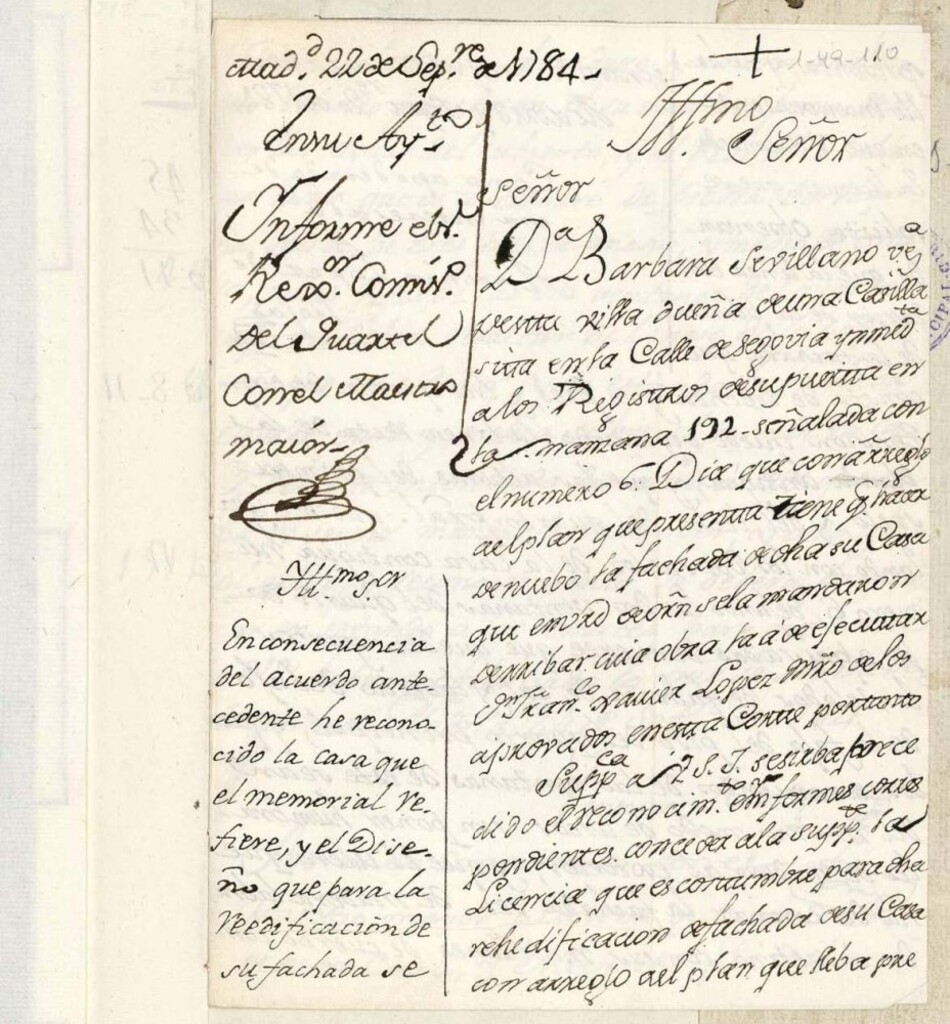 Mad.d 22 de Sep.re de 1784
En su Ay.to
Informe el S.r
Rexor. Comis.o
Del Quartel
Con el Maestro
maior
Ill.mo Sr
En consecuencia
del acuerdo ante-
cedente he recono-
cido la casa que
el memorial re-
fiere, y el Dise-
ño que para la
reedificacion de
su fachada se
1-49-110
Illmo
Señor
Señor
D.a Barbara Sevillano vez.a
de esta villa dueña de una Casilla
sita en la Calle de segovia ynmed.ta
a los Registros de su puerta en
la manzana 192 señalada con
el numero 6. Dice que con arreglo
ael plan que presenta tiene q.e hacer
de nuebo la fachada de dha su Casa
que en vrd de orñ se la mandaron
derribar cuia obra la á de efecuttar
Dn Fran.co Xavier Lopez Mrõ de los
aprovados en esta Corte por tanto
Supp.ca a V.S.I. se sirba prece
dido el reconocim.to e ynformes corres
pondientes conceder a la supp.te la
Licencia que es costumbre para dha
rehedificacion de fachada de su Casa
con arreglo ael plan que lleba pre